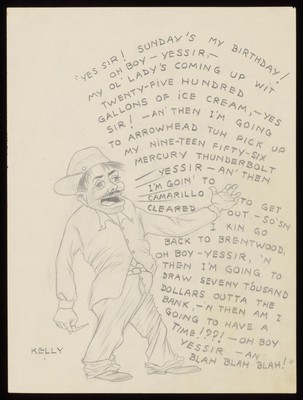 "YES SIR! SUNDAY'S MY BIRTHDAY!
OH BOY - YESSIR,-
MY OL' LADY'S COMING UP WIT
TWENTY-FIVE HUNDRED
GALLONS OF ICE CREAM,-YES
SIR! -AN' THEN I'M GOING
TO ARROWHEAD TUH PICK UP
MY NINE-TEEN FIFTY-SIX
MERCURY THUNDERBOLT
YESSIR-AN' THEN
I'M GOIN' TO
CAMARILLO TO GET
CLEARED OUT -SO'SN
I KIN GO
BACK TO BRENTWOOD,
OH BOY-YESSIR, 'N
THEN I'M GOING TO
DRAW SEVENY TOUSAND
DOLLARS OUTTA THE
BANK,-N THEN AM I
GOING TO HAVE A
TIME!??! -OH BOY
YESSIR -AN'
BLAH BLAH BLAH!"
KELLY